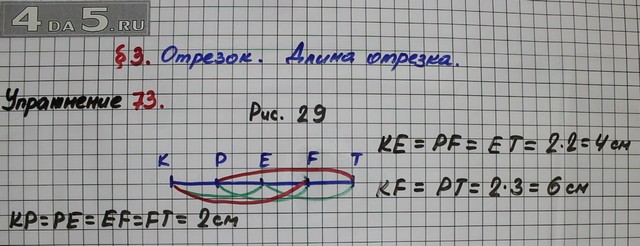 4 ДА 5.RU
§3. Отрезок. Длина отрезка.
Упражнение 73.
Рис. 29
K P E F T
KP = PE = EF = FT = 2 см
KE = PF = ET = 2·2 = 4 см
KF = PT = 2·3 = 6 см